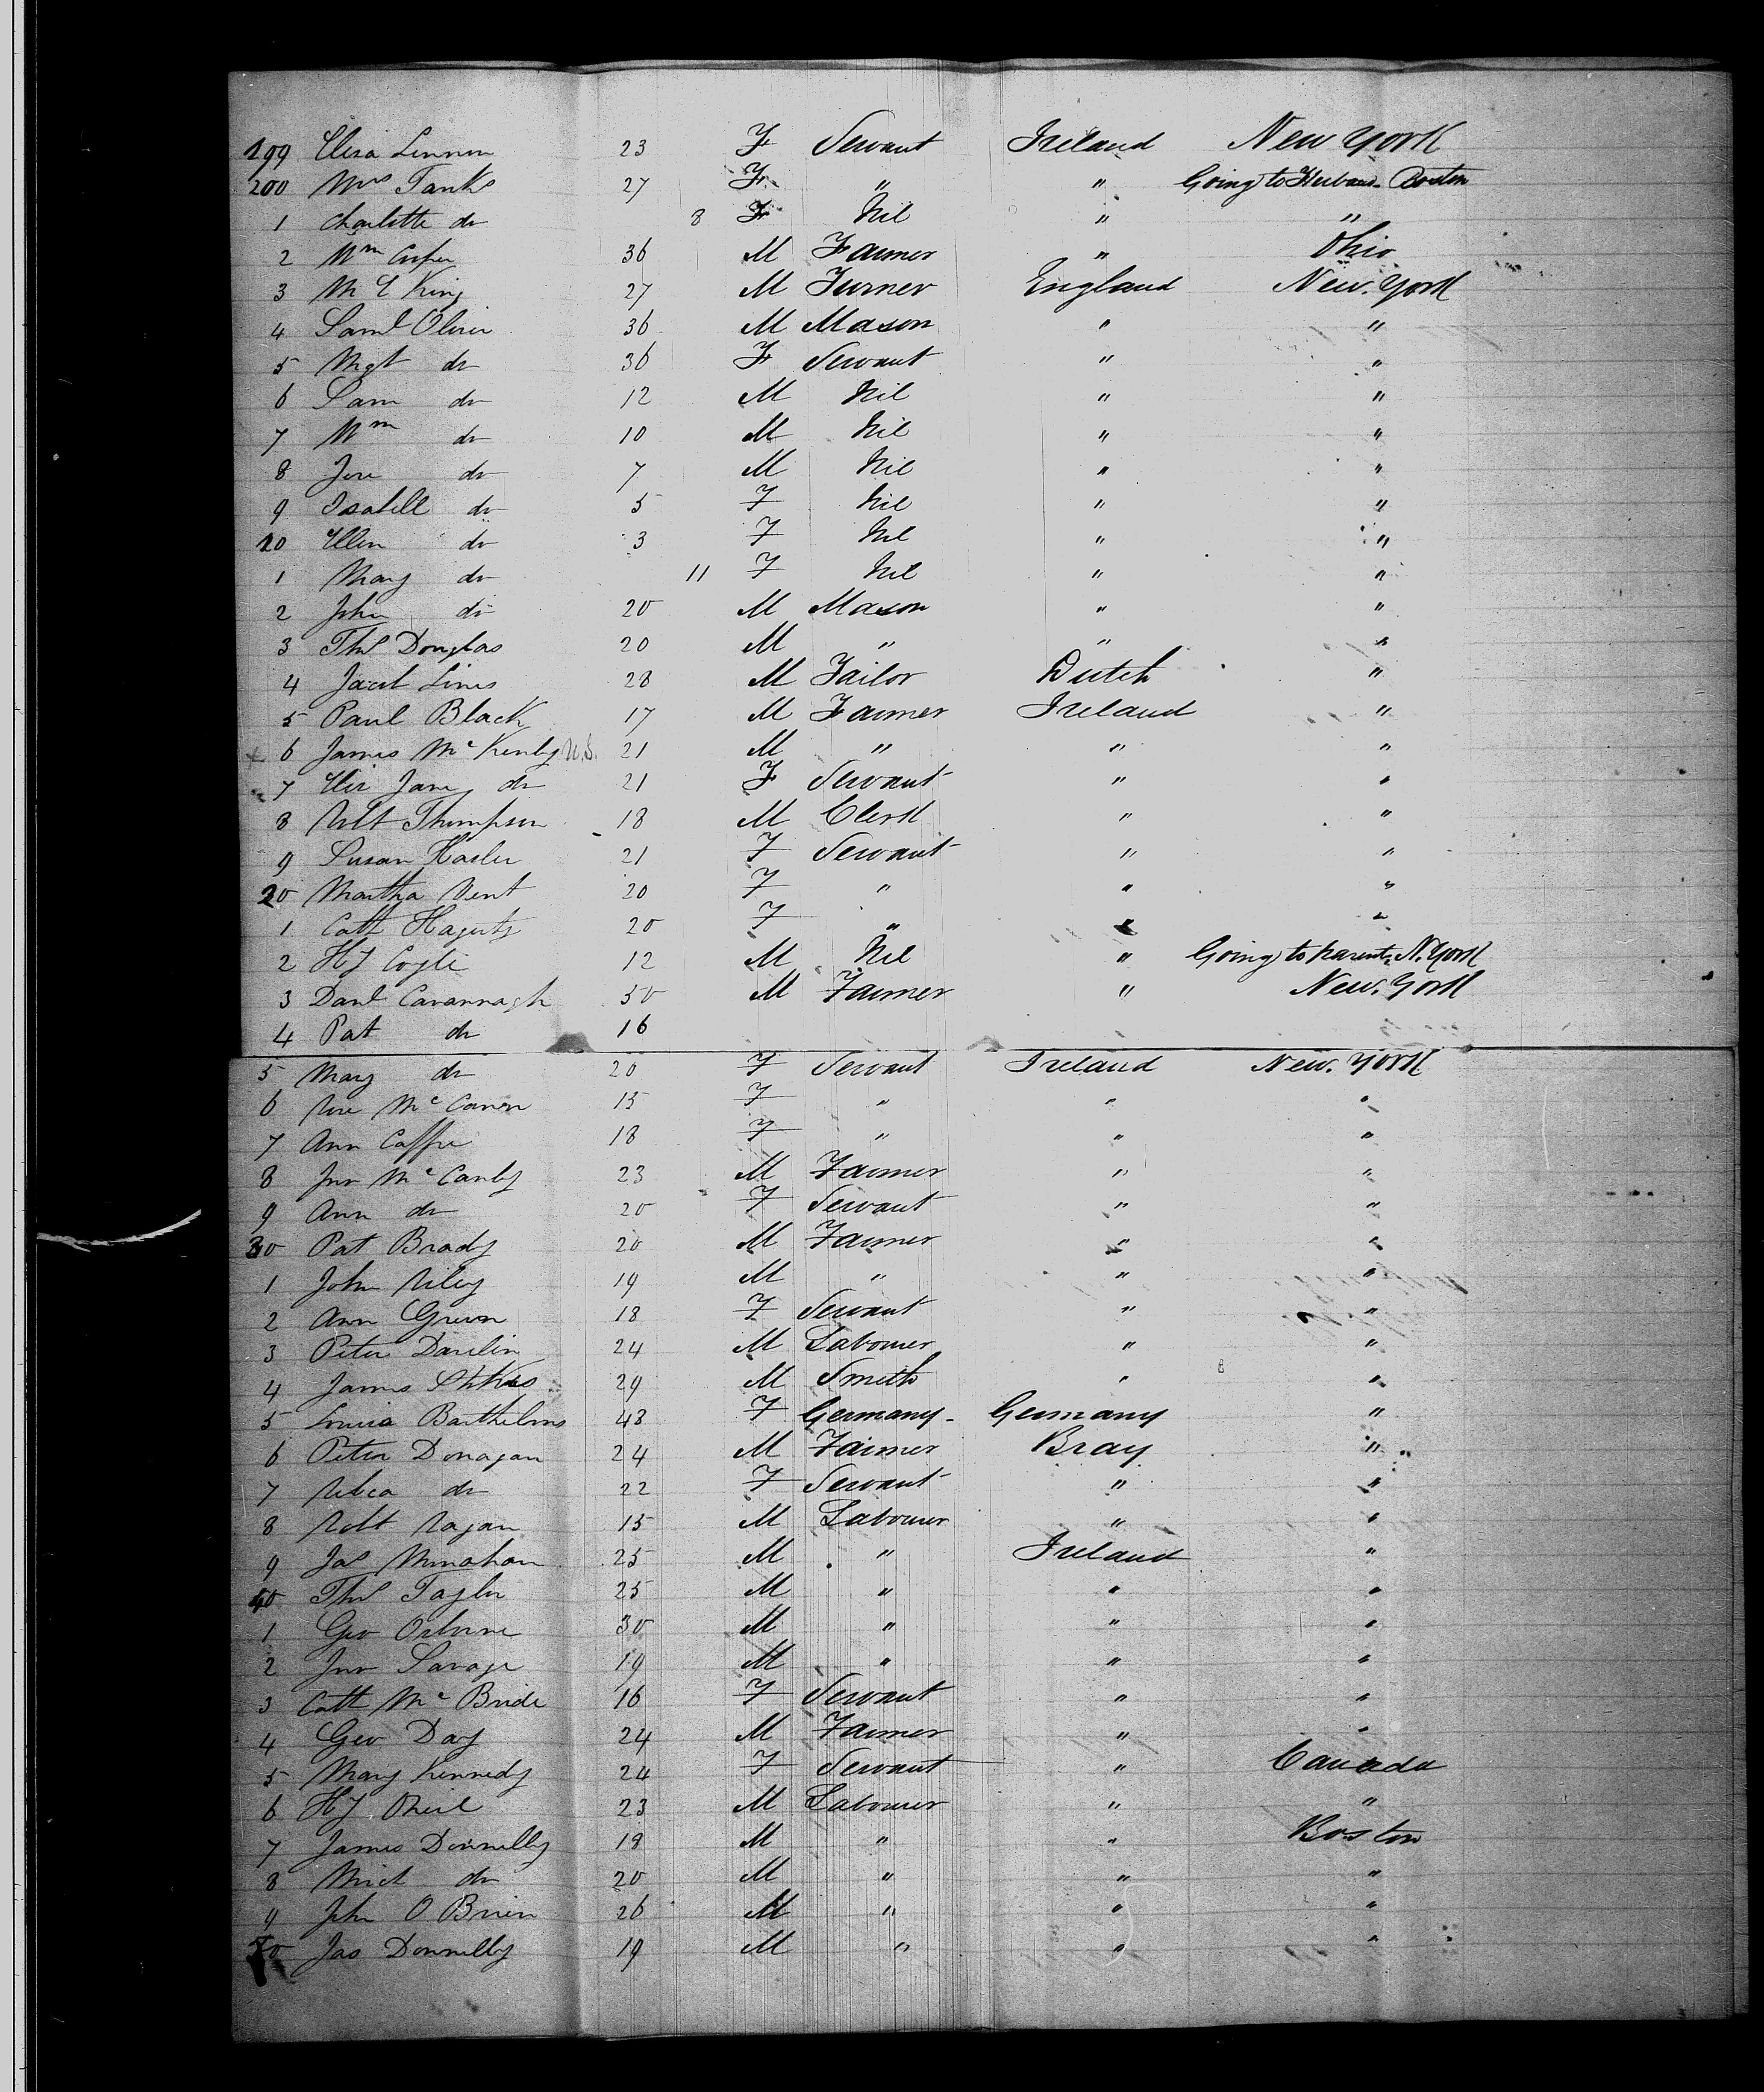 199 Eliza Lennon 23 F Servant Ireland New York
200 Mrs Tanks 27 F " " Going to Husband Boston
1 Charlotte do 8 F Nil " "
2 Wm 36 M Farmer " Ohio
3 M E King 27 M Turner England New York
4 Saml Oliver 36 M Mason " "
5 Mgt do 36 F Servant " "
6 Sam do 12 M Nil " "
7 Wm do 10 M Nil " "
8 Jos do 7 M Nil " "
9 Isabell do 5 F Nil " "
10 Ellen do 3 F Nil " "
1 Mary do 11 F Nil " "
2 John do 20 M Mason " "
3 Thos Douglas 20 M " " "
4 Jacob Lines 28 M Tailor Dutch "
5 Paul Black 17 M Farmer Ireland "
6 James Mc U.S. 21 M " " "
7 Eliz Jane do 21 F Servant " "
8 Robt Thompson 18 M Clerk " "
9 Susan Hasler 21 F Servant " "
20 Martha Vent 20 F " " "
1 Cath Hagerty 20 F " " "
2 Hy 12 M Nil " Going to parents N. York
3 Danl Cavannagh 50 M Farmer " New York
4 Pat do 16
5 Mary do 20 F Servant Ireland New York
6 Rose Mc 15 F " " "
7 Ann Caffre 18 F " " "
8 Jno Mc Canby 23 M Farmer " "
9 Ann do 20 F Servant " "
30 Pat Brady 20 M Farmer " "
1 John Riley 19 M " " "
2 Ann Green 18 F Servant " "
3 Peter 24 M Labourer " "
4 James 29 M Smith " "
5 Louisa Barthelms 48 F Germany Germany "
6 Peter Donagan 24 M Farmer Bray "
7 Rebca do 22 F Servant " "
8 Robt Ragan 15 M Labourer " "
9 Jas Minahan 25 M " Ireland "
40 Thos Taylor 25 M " " "
1 Geo Osborne 30 M " " "
2 Jno Savage 19 M " " "
3 Cath Mc Bride 16 F Servant " "
4 Geo Day 24 M Farmer " "
5 Mary Kennedy 24 F Servant " Canada
6 Hy Oneil 23 M Labourer " "
7 James Donnelly 18 M " " Boston
8 Mich do 20 M " " "
9 John O Brien 26 M " " "
50 Jas Donnelly 19 M " " "